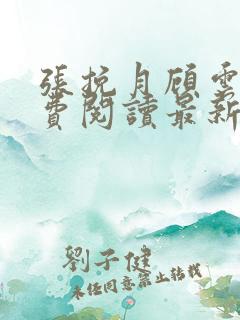 張抗月顧雲
費閱讀最新
劉子健
未經同意禁止轉載